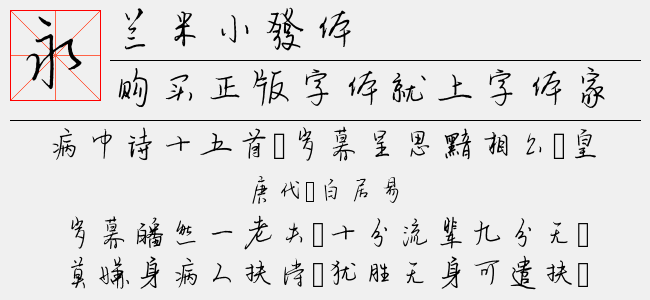 永
兰米小發体
购买正版字体就上字体家
病中诗十五首□岁暮呈思黯相公□皇
唐代□白居易
岁暮皤然一老夫□十分流辈九分无□
莫嫌身病人扶侍□犹胜无身可遣扶□